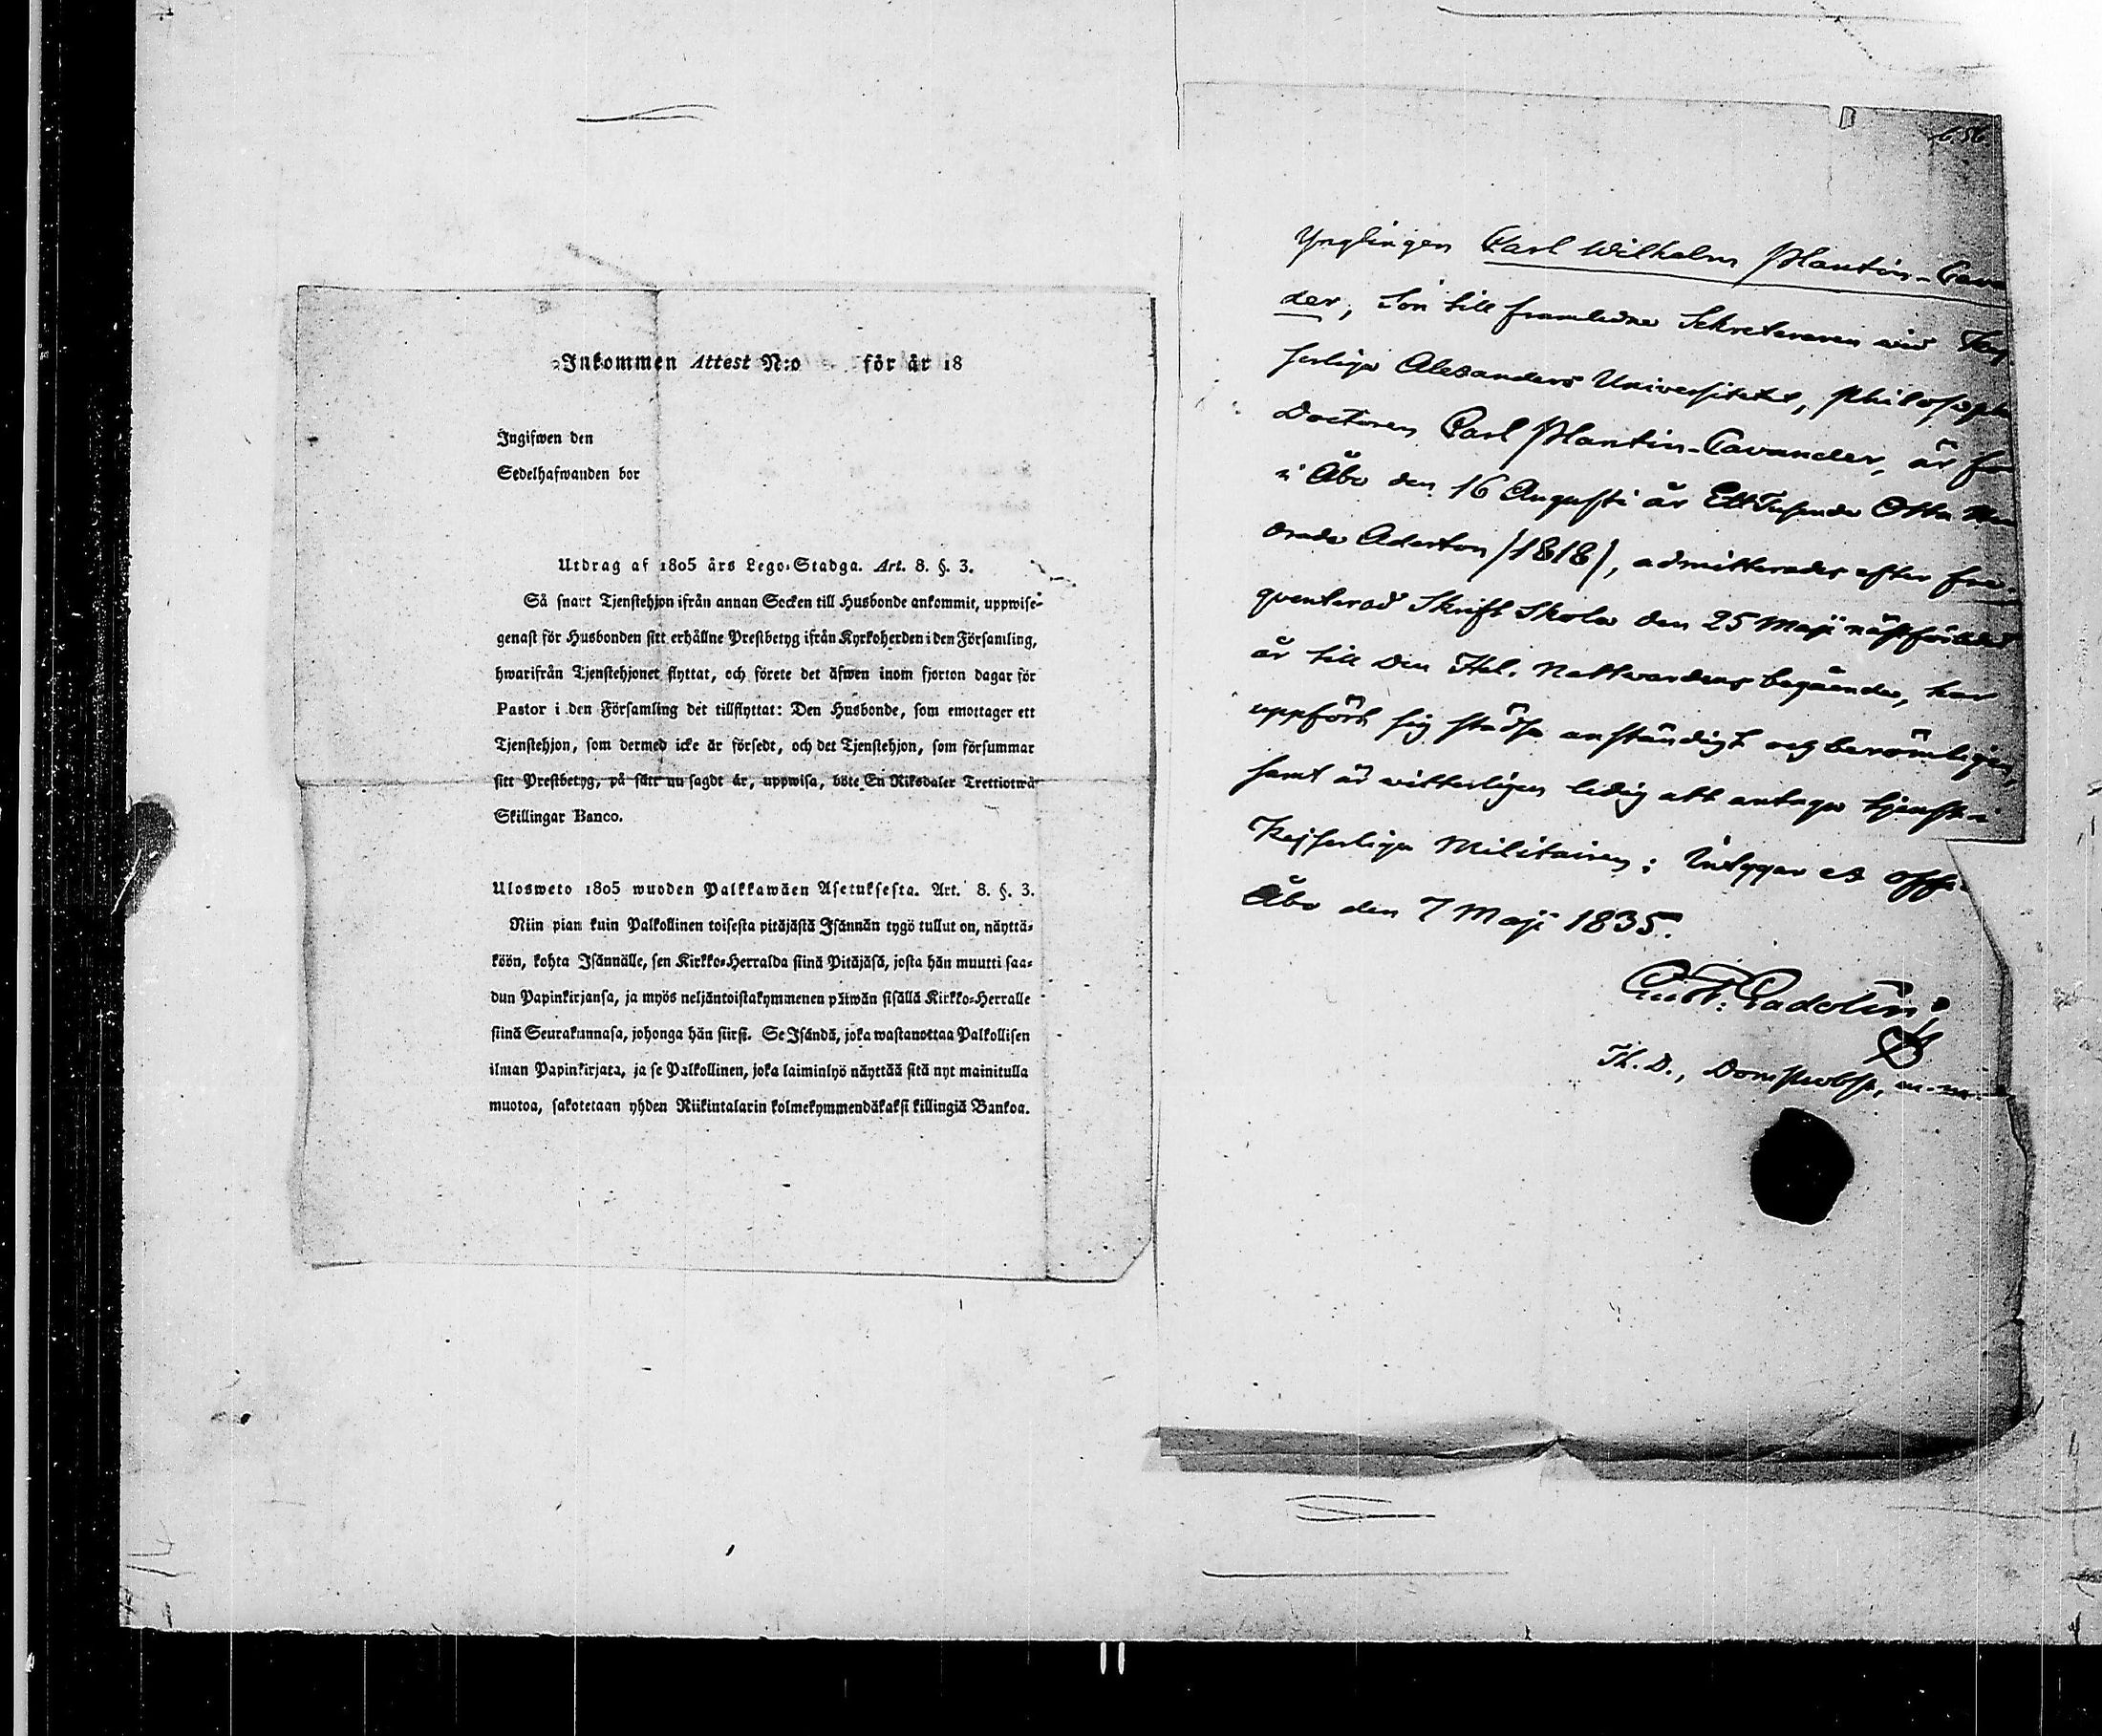 Inkommen Attest N:o för år 18
Ingifwen den
Sedelhafwanden bor
Utdrag af 1805 års Lego-Stadga. Art. 8. §. 3.
Så snart Tjenstehjon ifrån annan Socken till Husbonde ankommit, uppwise
genast för Husbonden sitt erhållne Prestbetyg ifrån Kyrkoherden i den Församling,
hwarifrån Tjenstehjonet flyttat, och förete det äfwen inom fjorton dagar för
Pastor i den Församling det tillflyttat: Den Husbonde, som emottager ett
Tjenstehjon, som dermed icke är försedt, och det Tjenstehjon, som försummar
sitt Prestbetyg, på sätt nu sagdt är, uppwisa, böte En Riksdaler Trettiotwå
Skillingar Banco.
Ulosweto 1805 wuoden Palkkawäen Asetuksesta. Art. 8. §. 3.
Niin pian kuin Palkollinen toisesta pitäjästä Isännän tygö tullut on, näyttä-
köön, kohta Isännälle, sen Kirkko-Herralda siinä Pitäjäsä, josta hän muutti saa-
dun Papinkirjansa, ja myös neljäntoistakymmenen päiwän sisällä Kirkko-Herralle
siinä Seurakunnasa, johonga hän siirsi. Se Isändä, joka wastanottaa Palkollisen
ilman Papinkirjata, ja se Palkollinen, joka laiminlyö näyttää sitä nyt mainitulla
muotoa, sakotetaan yhden Riikintalarin kolmekymmendäkaksi killingiä Bankoa.
656
Ynglingen Carl Wilhelm Plantin-Cava
der, Son till framledne Sekreteraren wid Kej-
serliga Alexanders Universitetet, Philosophie
Doctoren Carl Plantin-Cavander, är fö
i Åbo den 16 Augusti år Ett Tusende Otta Hun
drade Aderton (1818), admitterades efter fre-
quenterad Skrift Skola den 25 Maji nästförledet
år till den Hel. Nattwardens begående, har
uppfört sig städse anständigt och berömligen,
samt är witterligen ledig att antaga tjenst i
Kejserliga Militairen; Intygar ex offi
Åbo den 7 Maji 1835.
Gust. Gadolin
Th. D., Domprobst, m. m.